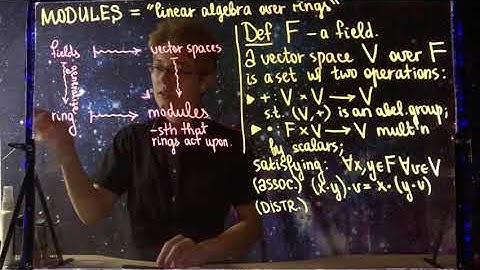 MODULES = "linear algebra over rings"
fields ↦ vector spaces
generalize
ring ↦ modules
- sth that
rings act upon.
Def F - a field.
a vector space V over F
is a set w/ two operations:
▸ + : V × V → V
s.t. (V, +) is an abel. group;
▸ • : F × V → V mult'n
by scalars;
satisfying: ∀x,y∈F ∀v∈V
(ASSOC.) (x·y)·v = x·(y·v)
(DISTR.)